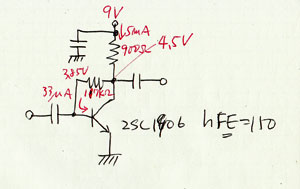 9V
↓5mA
900Ω
4,5V
3,85V
117KΩ
33μA
2SC1906 hFE=110